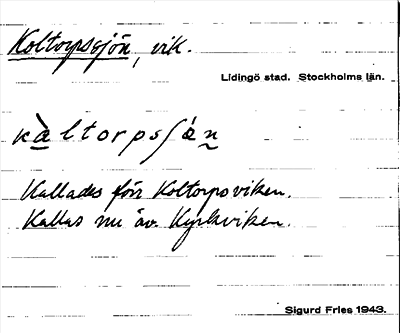 Koltorpssjön, vik.
Lidingö stad. Stockholms län.
Kallades förr Koltorpsviken.
Kallas nu äv. Kyrkviken.
Sigurd Fries 1943.